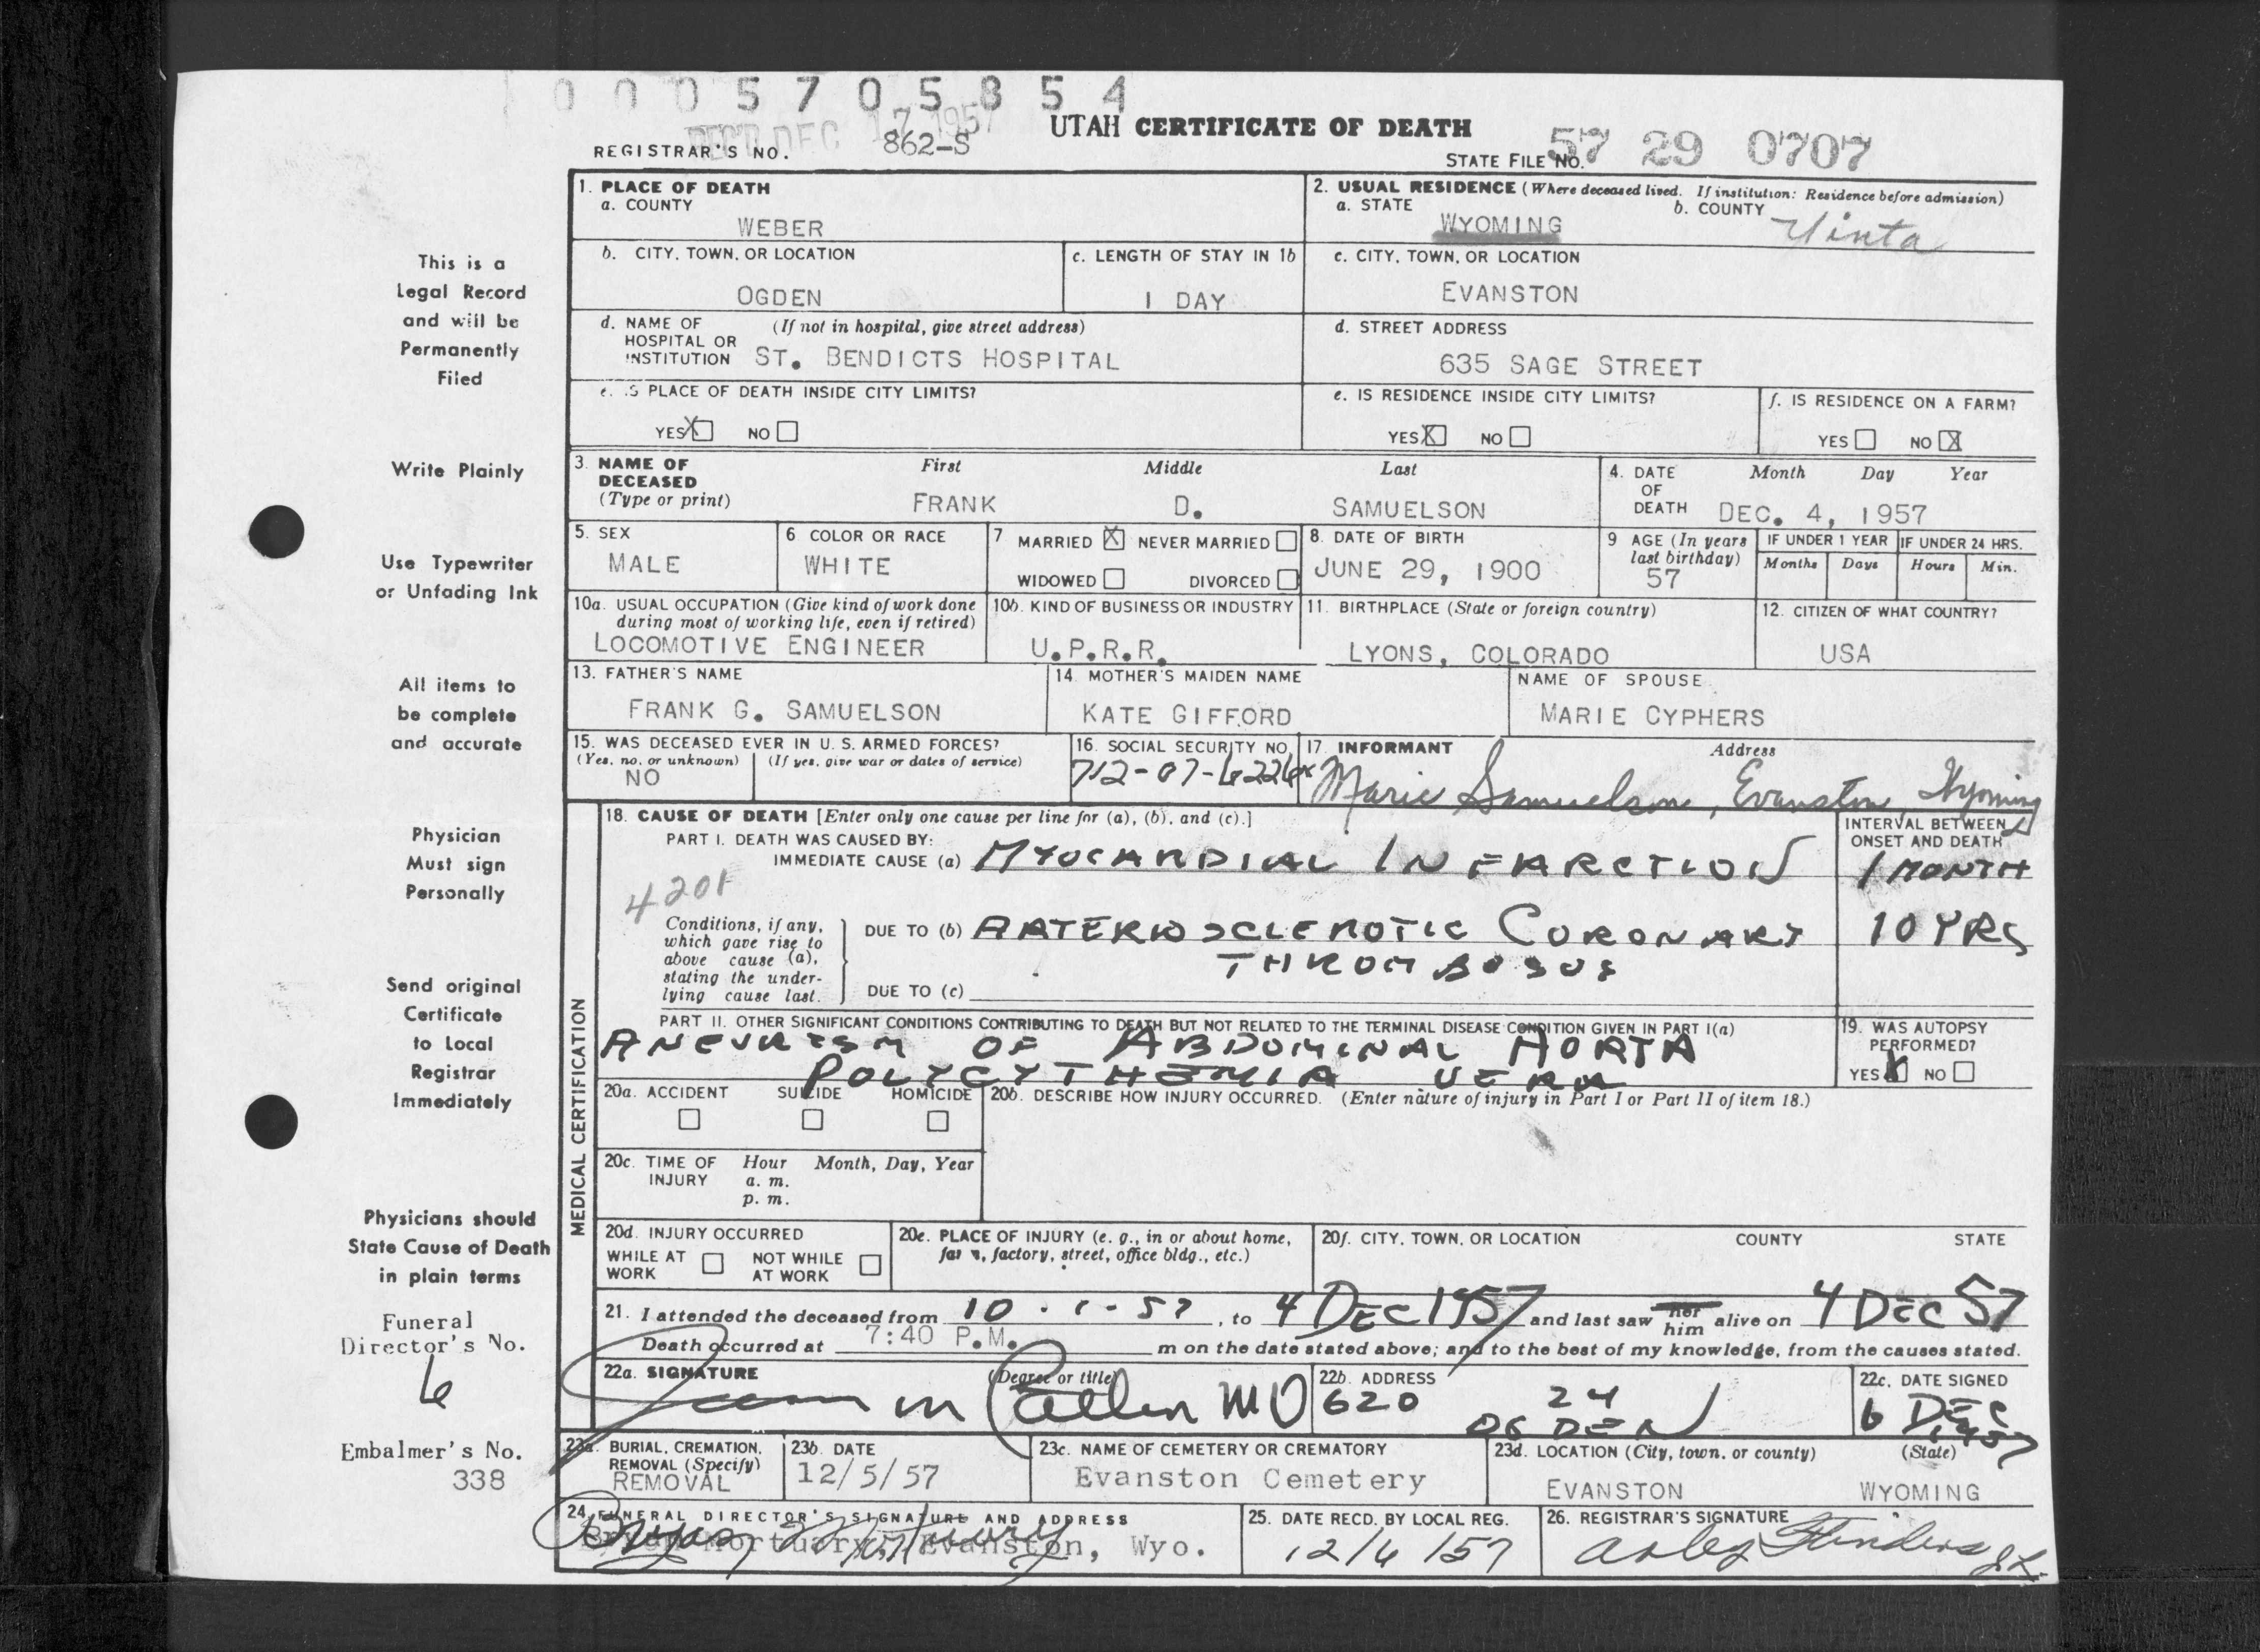 0 0 0 5 7 0 5 8 5 4
REC'D DEC 17 1957
UTAH CERTIFICATE OF DEATH
REGISTRAR'S NO. 862-S
STATE FILE NO. 57 29 0707
1. PLACE OF DEATH
a. COUNTY
WEBER
2. USUAL RESIDENCE (Where deceased lived. If institution: Residence before admission)
a. STATE b. COUNTY
WYOMING Uinta
b. CITY, TOWN, OR LOCATION
OGDEN
c. LENGTH OF STAY IN 1b
1 DAY
c. CITY, TOWN, OR LOCATION
EVANSTON
d. NAME OF (If not in hospital, give street address)
HOSPITAL OR
INSTITUTION ST. BENDICTS HOSPITAL
d. STREET ADDRESS
635 SAGE STREET
e. IS PLACE OF DEATH INSIDE CITY LIMITS?
YES X NO
e. IS RESIDENCE INSIDE CITY LIMITS?
YES X NO
f. IS RESIDENCE ON A FARM?
YES NO X
3. NAME OF First Middle Last
DECEASED
(Type or print) FRANK D. SAMUELSON
4. DATE Month Day Year
OF
DEATH DEC. 4, 1957
5. SEX
MALE
6 COLOR OR RACE
WHITE
7 MARRIED X NEVER MARRIED
WIDOWED DIVORCED
8. DATE OF BIRTH
JUNE 29, 1900
9 AGE (In years
last birthday)
57
IF UNDER 1 YEAR IF UNDER 24 HRS.
Months Days Hours Min.
10a. USUAL OCCUPATION (Give kind of work done
during most of working life, even if retired)
LOCOMOTIVE ENGINEER
10b. KIND OF BUSINESS OR INDUSTRY
U.P.R.R.
11. BIRTHPLACE (State or foreign country)
LYONS, COLORADO
12. CITIZEN OF WHAT COUNTRY?
USA
13. FATHER'S NAME
FRANK G. SAMUELSON
14. MOTHER'S MAIDEN NAME
KATE GIFFORD
NAME OF SPOUSE
MARIE CYPHERS
15. WAS DECEASED EVER IN U. S. ARMED FORCES?
(Yes, no, or unknown) (If yes, give war or dates of service)
NO
16. SOCIAL SECURITY NO.
712-07-6226
17. INFORMANT Address
Marie Samuelson, Evanston, Wyoming
MEDICAL CERTIFICATION
18. CAUSE OF DEATH [Enter only one cause per line for (a), (b), and (c).]
PART I. DEATH WAS CAUSED BY:
IMMEDIATE CAUSE (a) MYOCARDIAL INFARCTION
INTERVAL BETWEEN
ONSET AND DEATH
1 MONTH
4201
Conditions, if any,
which gave rise to
above cause (a),
stating the under-
lying cause last.
DUE TO (b) ARTERIOSCLEROTIC CORONARY
THROMBOSUS
10 YRS
DUE TO (c)
PART II. OTHER SIGNIFICANT CONDITIONS CONTRIBUTING TO DEATH BUT NOT RELATED TO THE TERMINAL DISEASE CONDITION GIVEN IN PART I(a)
ANEURISM OF ABDOMINAL AORTA
POLYCYTHEMIA VERA
19. WAS AUTOPSY
PERFORMED?
YES X NO
20a. ACCIDENT SUICIDE HOMICIDE
20b. DESCRIBE HOW INJURY OCCURRED. (Enter nature of injury in Part I or Part II of item 18.)
20c. TIME OF Hour Month, Day, Year
INJURY a. m.
p. m.
20d. INJURY OCCURRED
WHILE AT WORK NOT WHILE AT WORK
20e. PLACE OF INJURY (e. g., in or about home,
farm, factory, street, office bldg., etc.)
20f. CITY, TOWN, OR LOCATION COUNTY STATE
21. I attended the deceased from 10-1-57, to 4 DEC 1957 and last saw her him alive on 4 DEC 57
Death occurred at 7:40 P.M. m on the date stated above; and to the best of my knowledge, from the causes stated.
22a. SIGNATURE (Degree or title)
MD
22b. ADDRESS
620 24
OGDEN
22c. DATE SIGNED
6 DEC
1957
23a. BURIAL, CREMATION,
REMOVAL (Specify)
REMOVAL
23b. DATE
12/5/57
23c. NAME OF CEMETERY OR CREMATORY
Evanston Cemetery
23d. LOCATION (City, town, or county) (State)
EVANSTON WYOMING
24. FUNERAL DIRECTOR'S SIGNATURE AND ADDRESS
Mortuary, Evanston, Wyo.
25. DATE RECD. BY LOCAL REG.
12/6/57
26. REGISTRAR'S SIGNATURE
This is a
Legal Record
and will be
Permanently
Filed
Write Plainly
Use Typewriter
or Unfading Ink
All items to
be complete
and accurate
Physician
Must sign
Personally
Send original
Certificate
to Local
Registrar
Immediately
Physicians should
State Cause of Death
in plain terms
Funeral
Director's No.
6
Embalmer's No.
338